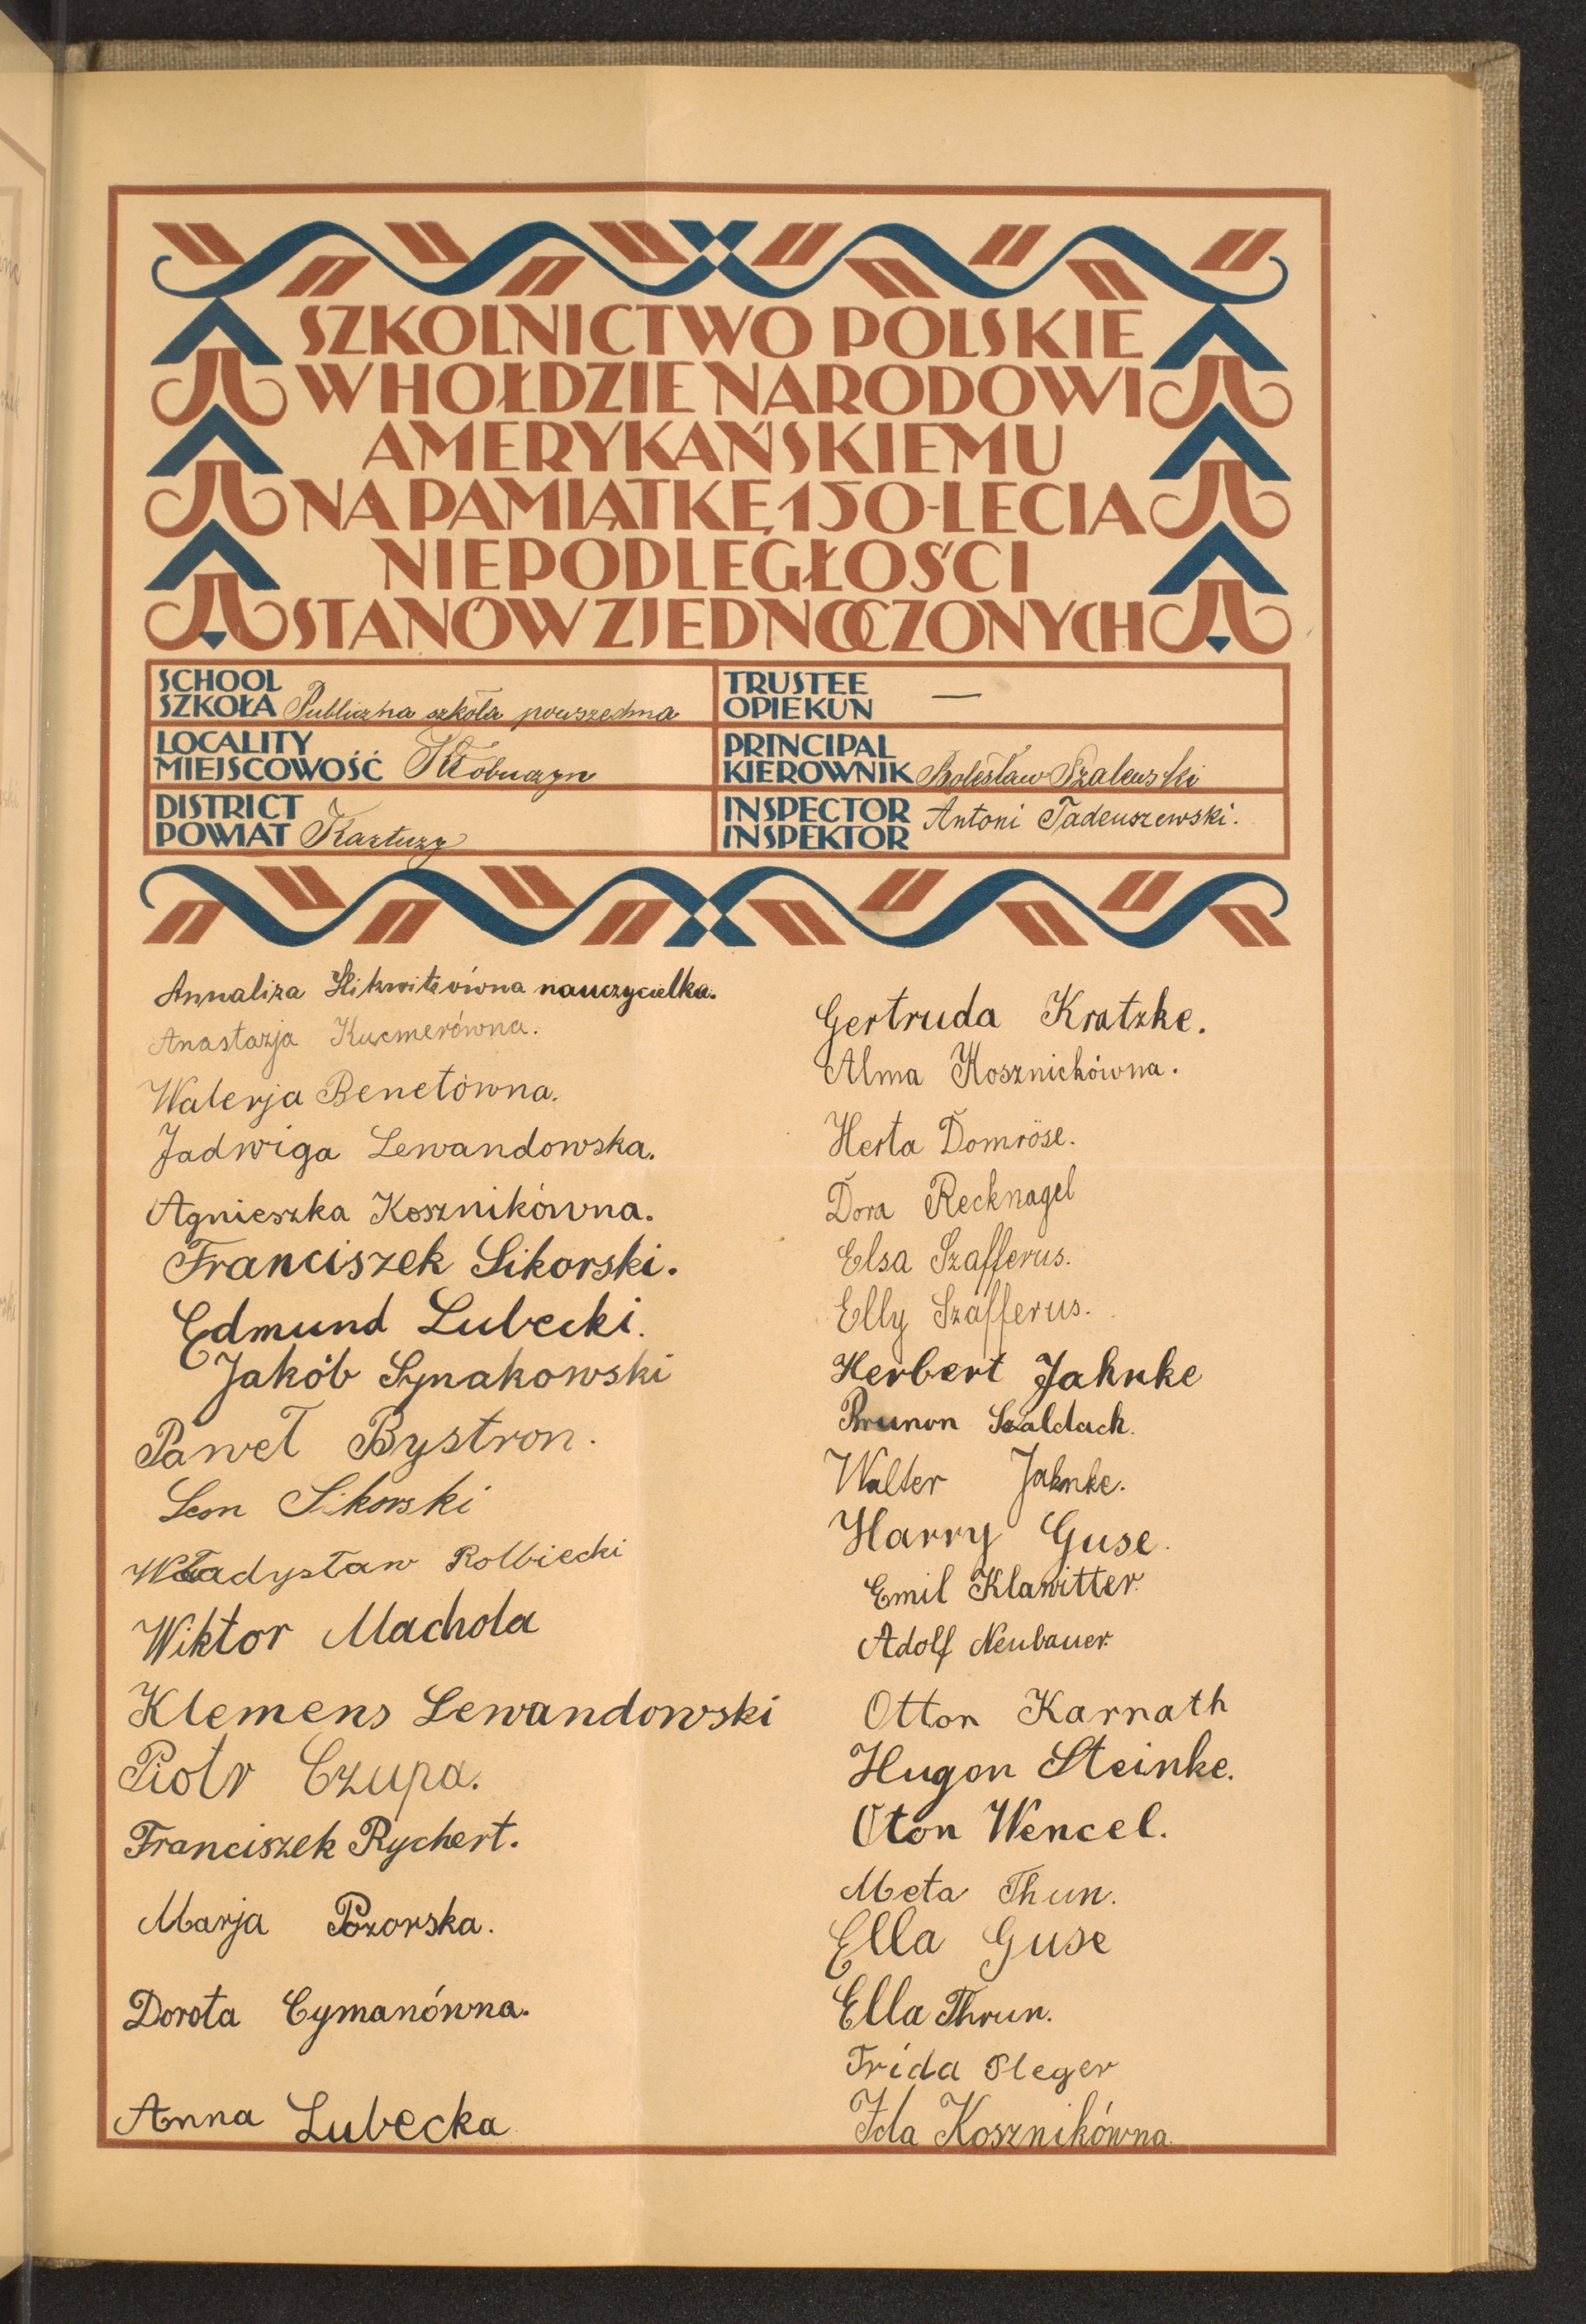 SZKOLNICTWO POLSKIE
W HOŁDZIE NARODOWI
AMERYKAŃSKIEMU
NA PAMIĄTKĘ 150-LECIA
NIEPODLEGŁOŚCI
STANÓW ZJEDNOCZONYCH
SCHOOL
SZKOŁA Publiczna szkoła powszechna
TRUSTEE
OPIEKUN —
LOCALITY
MIEJSCOWOŚĆ Kłobuczyn
PRINCIPAL
KIEROWNIK Bolesław Szalewski
DISTRICT
POWIAT Kartuzy
INSPECTOR
INSPEKTOR Antoni Tadeuszewski.
Annaliza nauczycielka.
Anastazja Kucmerówna.
Walerja Benetówna.
Jadwiga Lewandowska.
Agnieszka Kosznikówna.
Franciszek Sikorski.
Edmund Lubecki.
Jakób Synakowski
Paweł Bystron.
Leon Sikorski
Władysław Rolbiecki
Wiktor Machola
Klemens Lewandowski
Piotr Czupa.
Franciszek Rychert.
Marja Pozorska.
Dorota Cymanówna.
Anna Lubecka
Gertruda Kratzke.
Alma Kosznickówna.
Herta Domröse.
Dora Recknagel
Elsa Szafferus.
Elly Szafferus.
Herbert Jahnke
Brunon Szaldach.
Walter Jahnke.
Harry Guse.
Emil Klawitter.
Adolf Neubauer.
Otton Karnath
Hugon Steinke.
Oton Wencel.
Meta Thun.
Ella Guse
Ella Thrun.
Frida Pleger
Ida Kosznikówna.